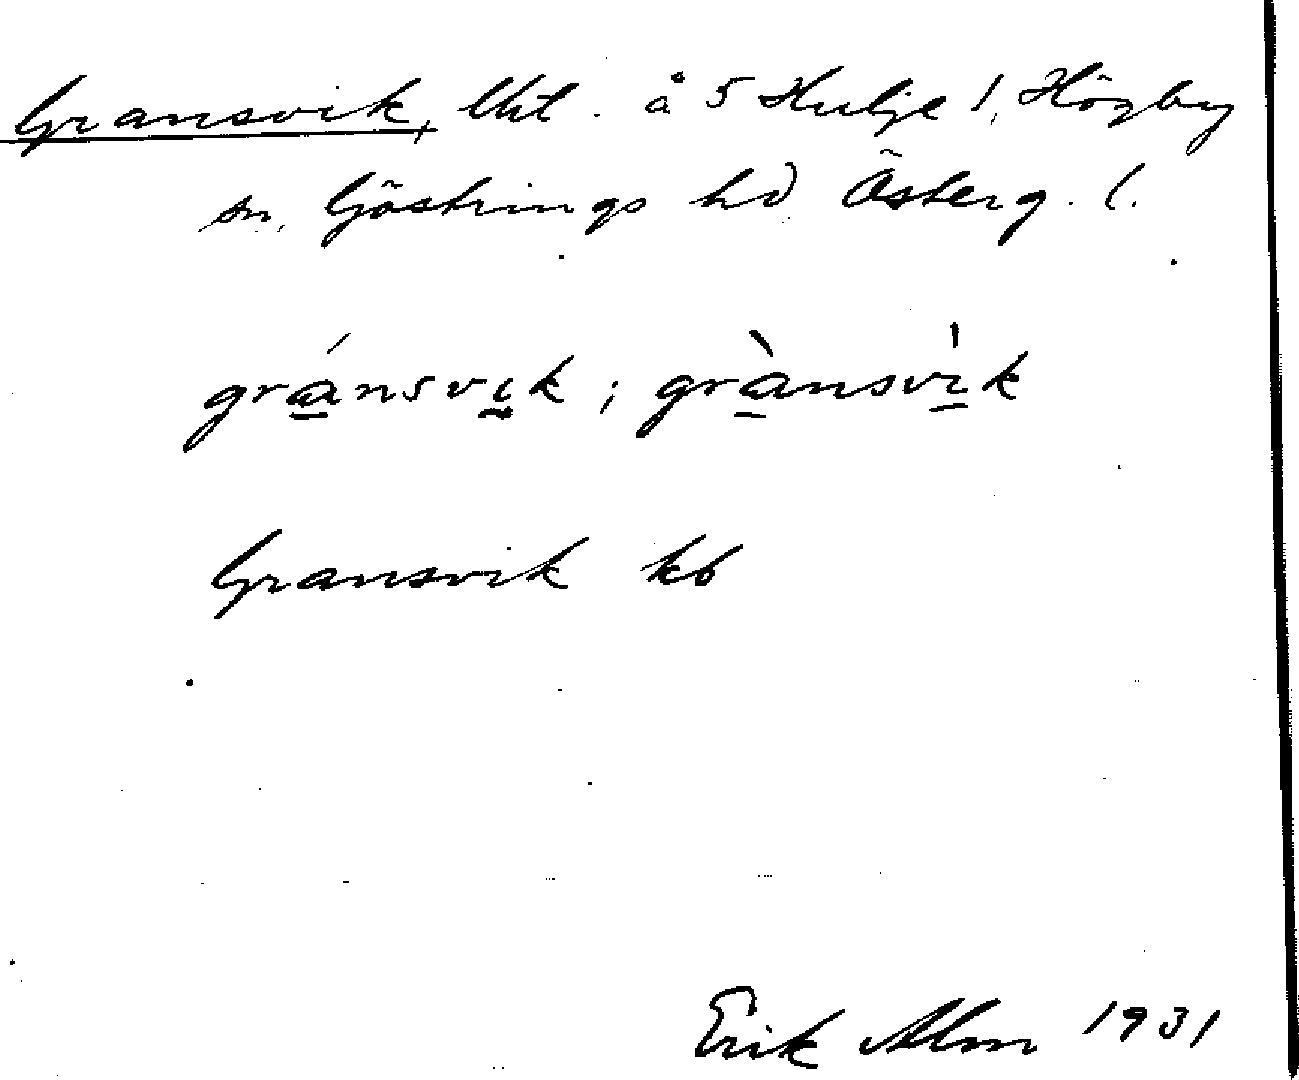 Gransvik, lht. å 5 Hulje 1, Högby
sn, Göstrings hd Österg. l.
gránsvik ; grànsvìk
Gransvik kb
Erik Alm 1931